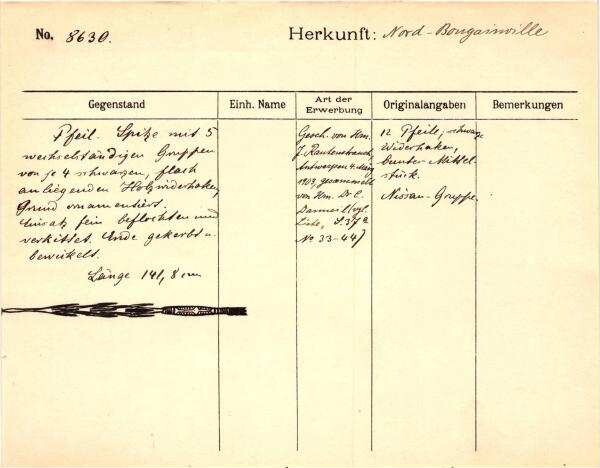 No. 8630.
Herkunft: Nord-Bougainville
Gegenstand
Einh. Name
Art der Erwerbung
Originalangaben
Bemerkungen
Pfeil. Spitze mit 5
wechselständigen Gruppen
von je 4 schwarzen, flach
anliegenden Holzwiderhaken,
Grund ornamentiert.
Einsatz fein beflochten und
verkittet. Ende gekerbt u.
bewickelt.
Länge 141,8 cm
Gesch. von Hrn.
J. Rautenstrauch,
Antwerpen 4. März
1903, gesammelt
von Hrn. Dr. C.
Danneil (vgl.
Liste, S. 37
No 33-44)
12 Pfeile, schwarze
Widerhaken,
bunter Mittel-
stück.
Nissan-Gruppe.